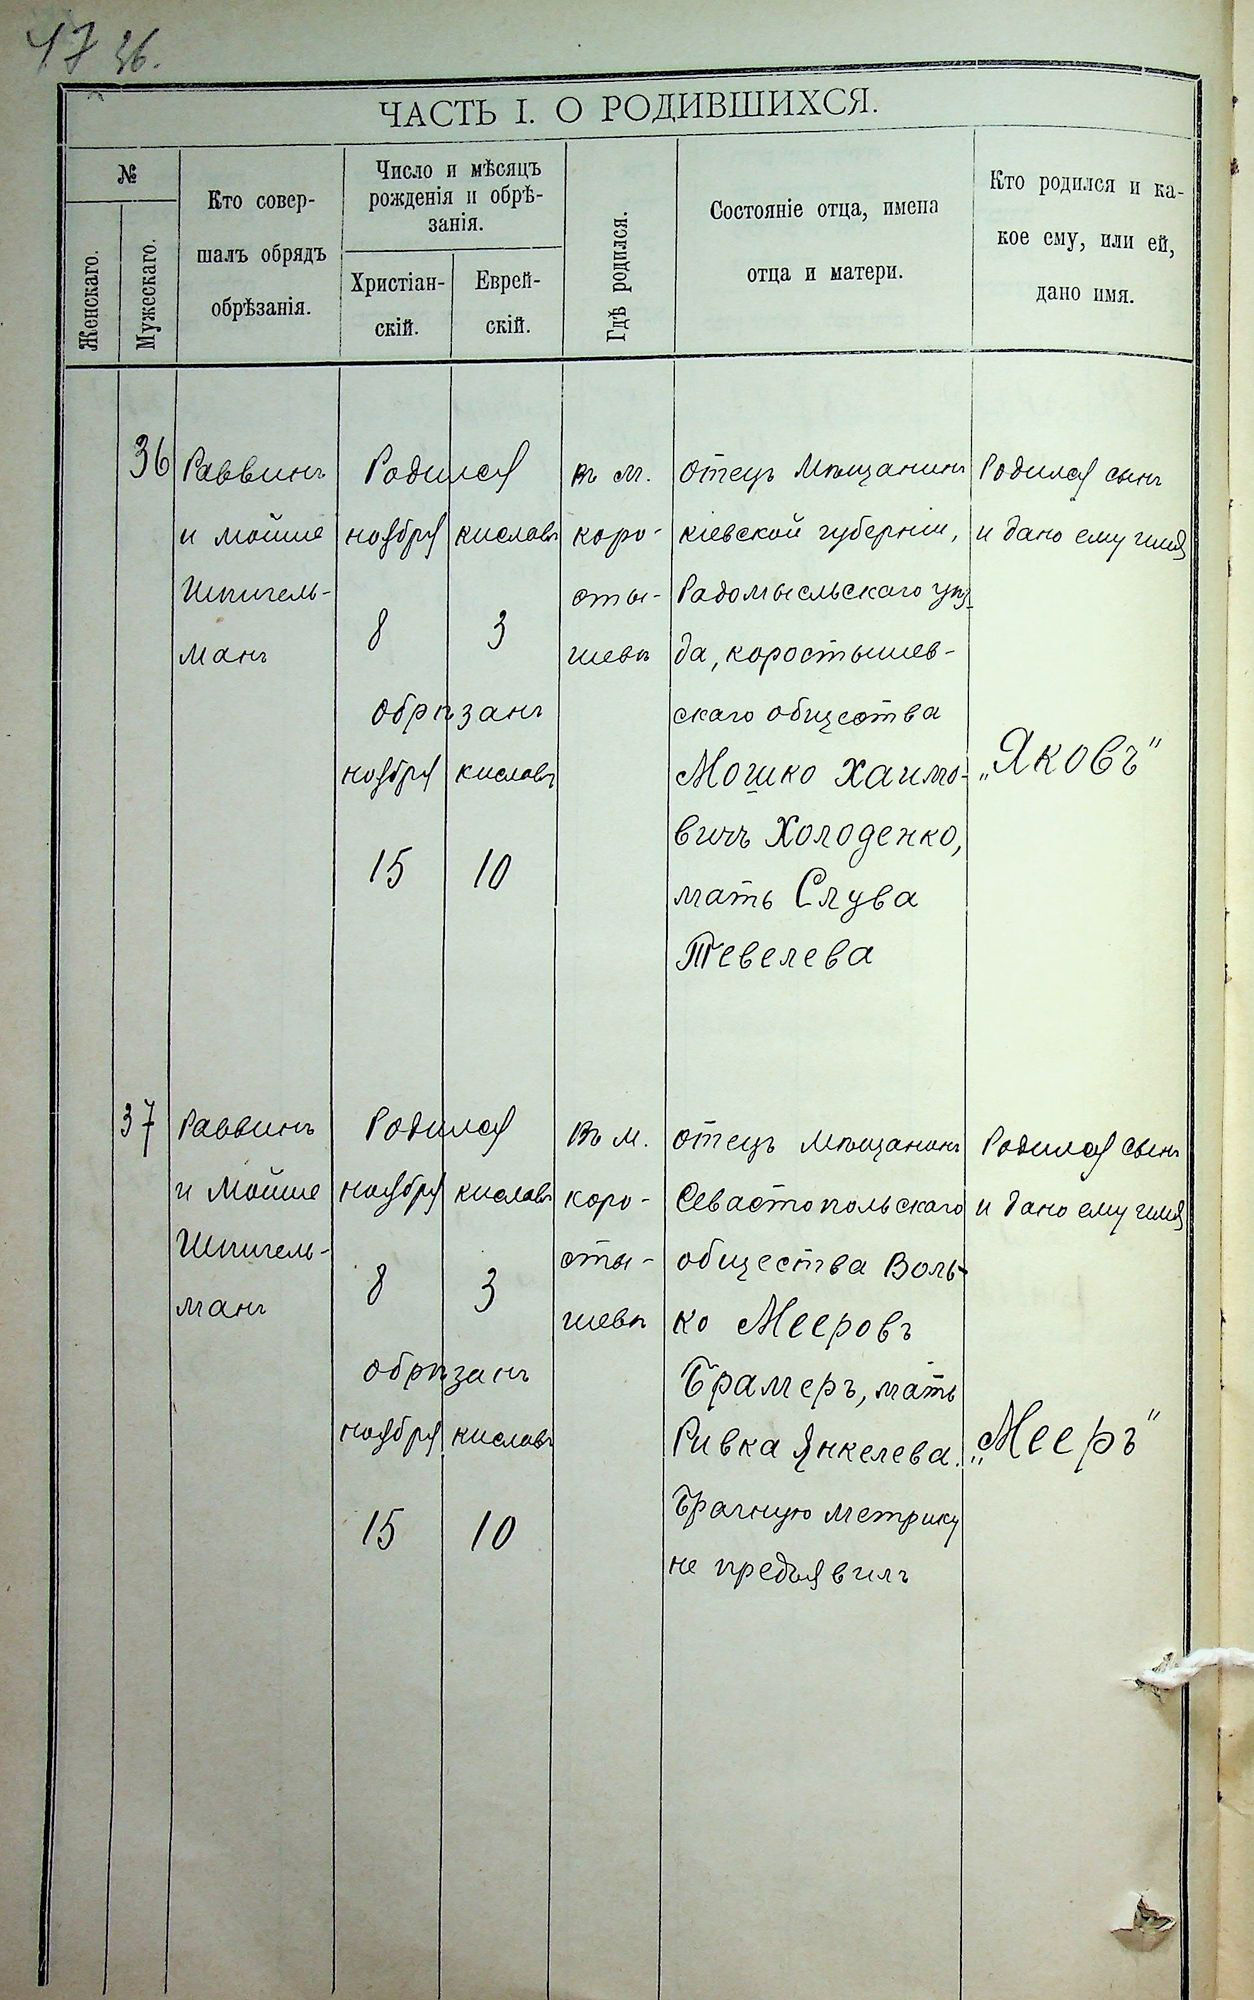 47 36.
ЧАСТЬ I. О РОДИВШИХСЯ.
№
Женскаго.
Мужескаго.
Кто совер-
шалъ обрядъ
обрѣзанія.
Число и мѣсяцъ
рожденія и обрѣ-
занія.
Христіан-
скій.
Еврей-
скій.
Гдѣ родился.
Состояніе отца, имена
отца и матери.
Кто родился и ка-
кое ему, или ей,
дано имя.
36
Раввинъ
и Мойше
Шпигель-
манъ
Родился
ноября
кислевъ
8
3
обрѣзанъ
ноября
кислевъ
15
10
въ м.
коро-
сты-
шевѣ
отецъ мѣщанинъ
кіевской губерніи,
Радомысльскаго уѣз-
да, коростышев-
скаго общества
Мошко Хаимо-
вичъ Холоденко,
мать Слува
Тевелева
Родился сынъ
и дано ему имя
„Яковъ“
37
Раввинъ
и Мойше
Шпигель-
манъ
Родился
ноября
кислевъ
8
3
обрѣзанъ
ноября
кислевъ
15
10
въ м.
коро-
сты-
шевѣ
отецъ мѣщанинъ
Севастопольскаго
общества Воль-
ко Мееровъ
Брамеръ, мать
Ривка Янкелева.
Брачную метрику
не предъявилъ
Родился сынъ
и дано ему имя
„Мееръ“